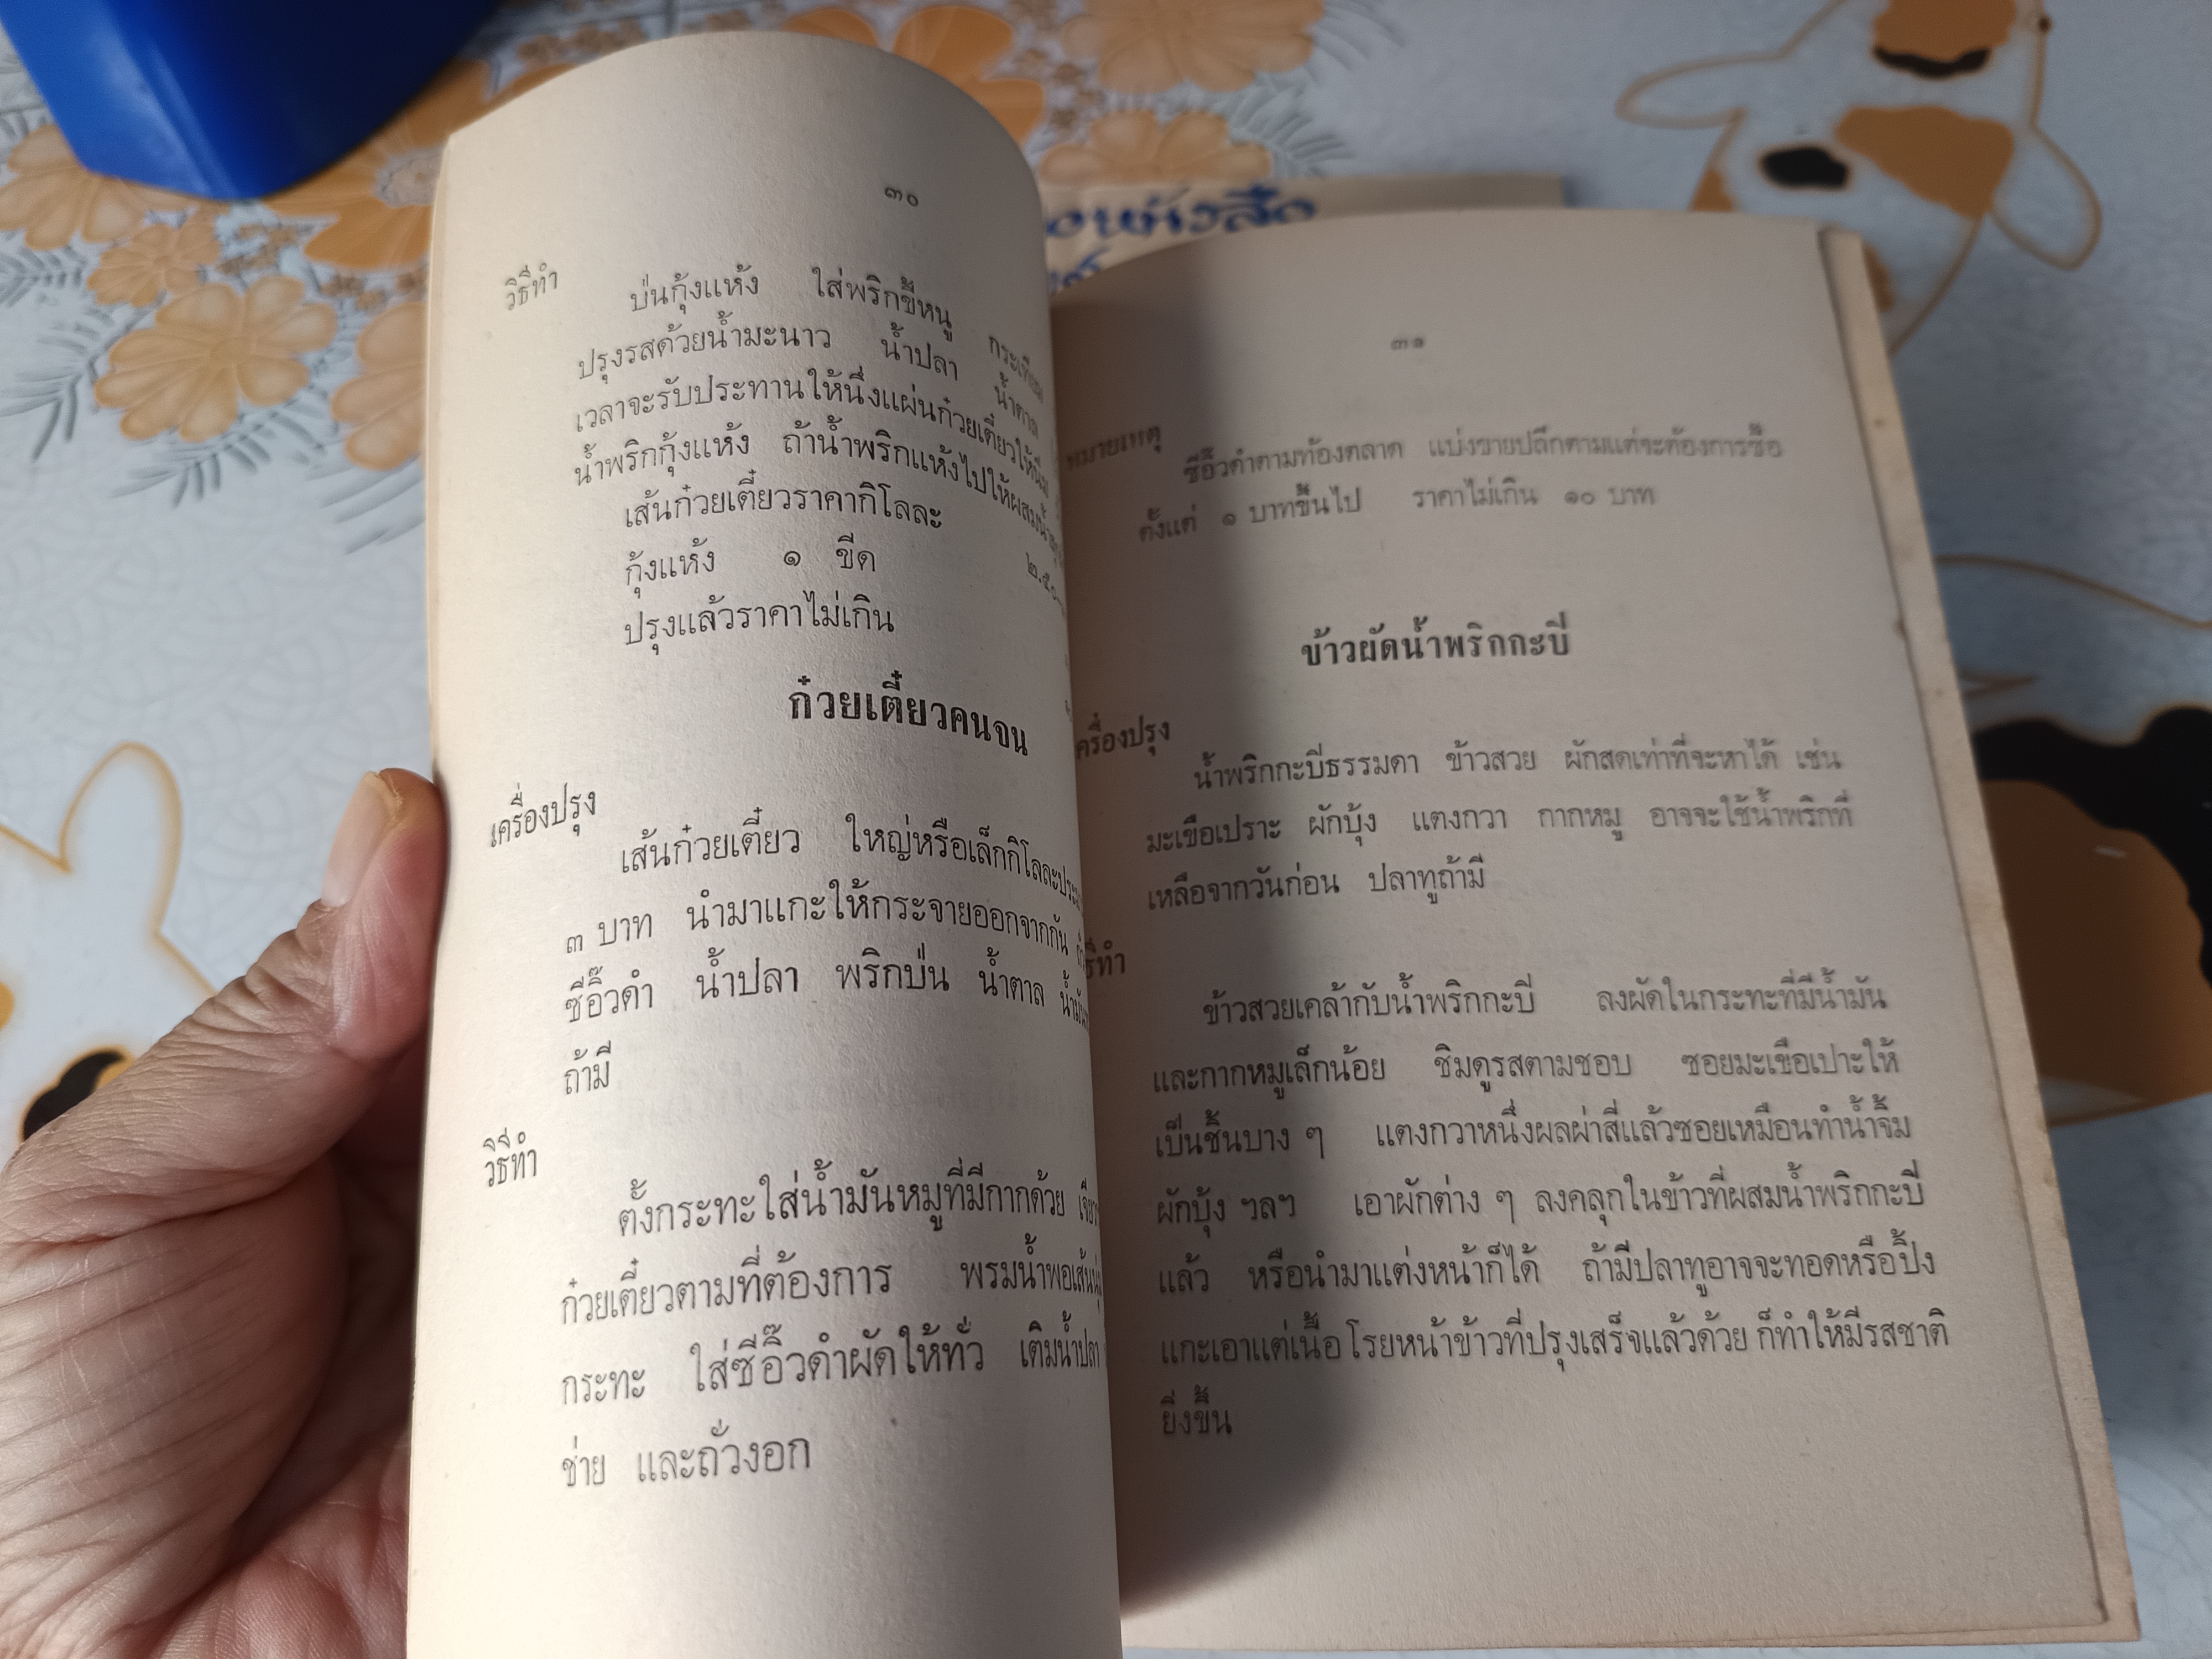 ๓๐
วิธีทำ
ป่นกุ้งแห้ง ใส่พริกขี้หนู กระเทียม
ปรุงรสด้วยน้ำมะนาว น้ำปลา น้ำตาล
เวลาจะรับประทานให้นึ่งแผ่นก๋วยเตี๋ยวให้นิ่ม
น้ำพริกกุ้งแห้ง ถ้าน้ำพริกแห้งไปให้ผสมน้ำ
เส้นก๋วยเตี๋ยวราคากิโลละ
กุ้งแห้ง ๑ ขีด
ปรุงแล้วราคาไม่เกิน
ก๋วยเตี๋ยวคนจน
เครื่องปรุง
เส้นก๋วยเตี๋ยว ใหญ่หรือเล็กกิโลละ
๓ บาท นำมาแกะให้กระจายออกจากกัน
ซีอิ๊วดำ น้ำปลา พริกป่น น้ำตาล
ถ้ามี
วิธีทำ
ตั้งกระทะใส่น้ำมันหมูที่มีกากด้วย
ก๋วยเตี๋ยวตามที่ต้องการ พรมน้ำพอเส้น
กระทะ ใส่ซีอิ๊วดำผัดให้ทั่ว เติมน้ำปลา
ช่าย และถั่วงอก
อหนังสือ
๓๑
หมายเหตุ
ซีอิ๊วดำตามท้องตลาด แบ่งขายปลีกตามแต่จะต้องการซื้อ
ตั้งแต่ ๑ บาทขึ้นไป ราคาไม่เกิน ๑๐ บาท
ข้าวผัดน้ำพริกกะปี
ครื่องปรุง
น้ำพริกกะปีธรรมดา ข้าวสวย ผักสดเท่าที่จะหาได้ เช่น
มะเขือเปราะ ผักบุ้ง แตงกวา กากหมู อาจจะใช้น้ำพริกที่
เหลือจากวันก่อน ปลาทูถ้ามี
ธีทำ
ข้าวสวยเคล้ากับน้ำพริกกะปี ลงผัดในกระทะที่มีน้ำมัน
และกากหมูเล็กน้อย ชิมดูรสตามชอบ ซอยมะเขือเปาะให้
เป็นชิ้นบาง ๆ แตงกวาหนึ่งผลผ่าสี่แล้วซอยเหมือนทำน้ำจิ้ม
ผักบุ้ง ฯลฯ เอาผักต่าง ๆ ลงคลุกในข้าวที่ผสมน้ำพริกกะปี
แล้ว หรือนำมาแต่งหน้าก็ได้ ถ้ามีปลาทูอาจจะทอดหรือปิ้ง
แกะเอาแต่เนื้อ โรยหน้าข้าวที่ปรุงเสร็จแล้วด้วย ก็ทำให้มีรสชาติ
ยิ่งขึ้น